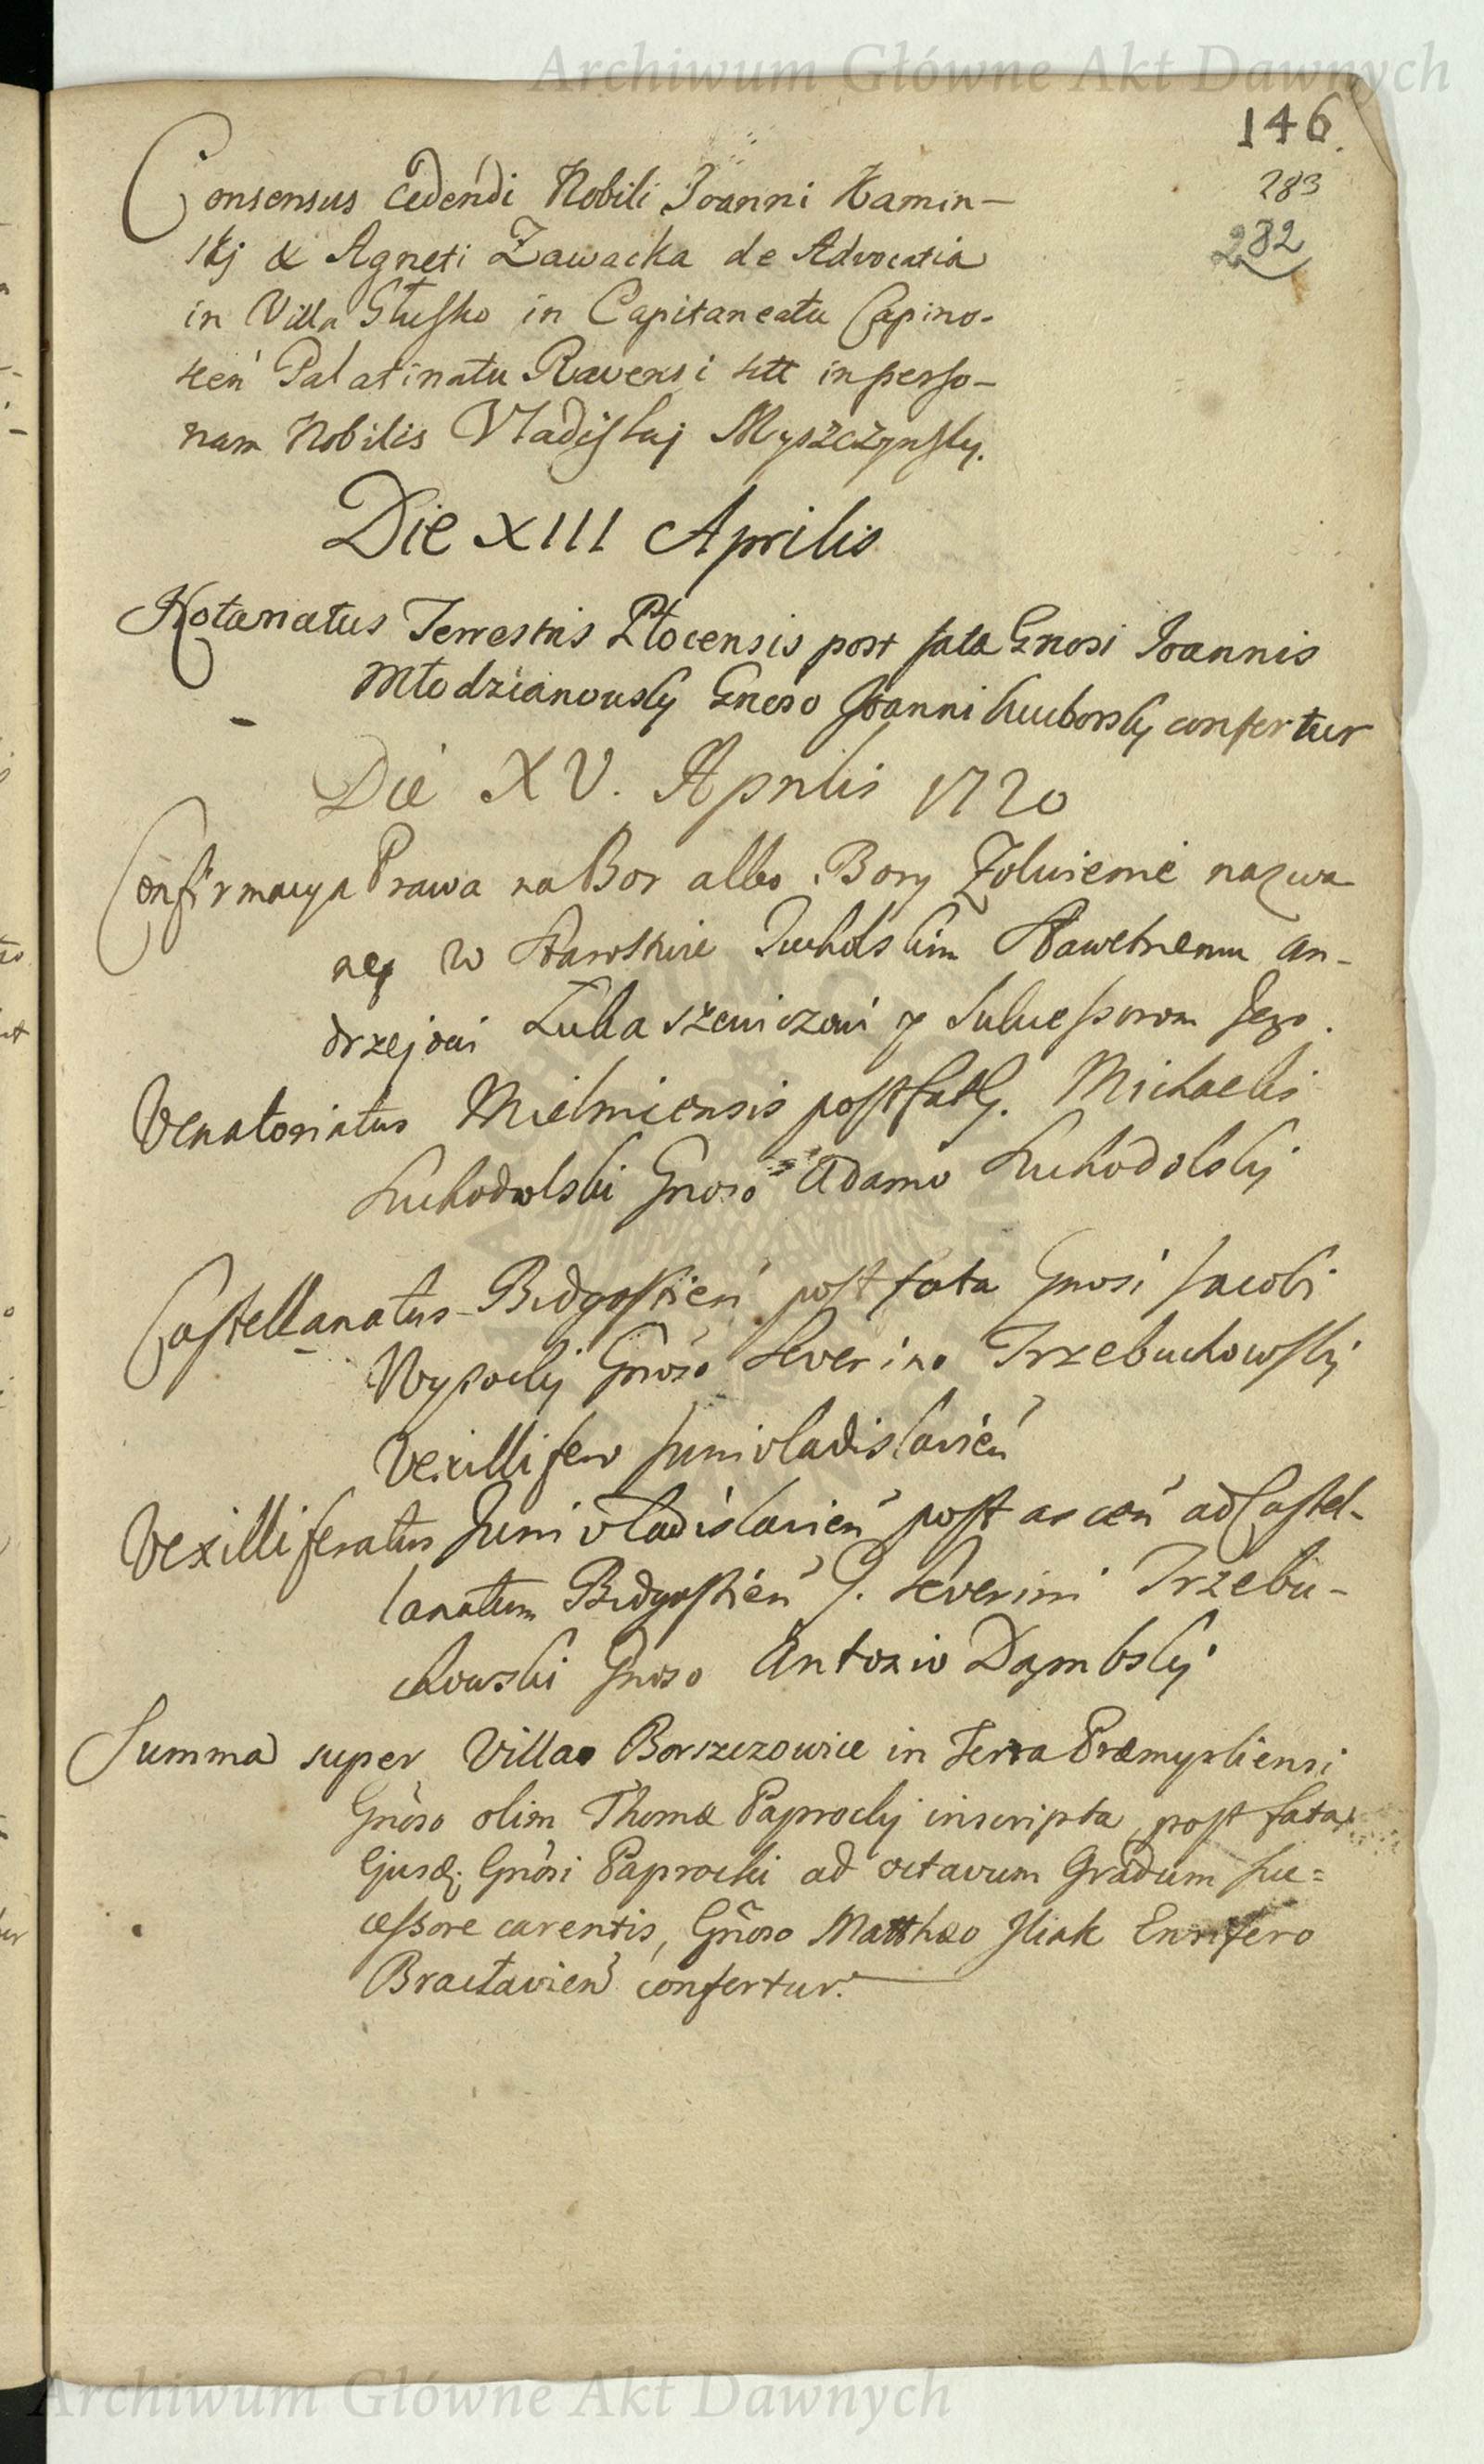 Archiwum Główne Akt Dawnych
146.
283
282
Consensus cedendi Nobili Joanni Kamin-
skj & Agneti Zawacka de Advocatia
in Villa Słusko in Capitaneatu Capino-
scen Palatinatu Ravensi sitt in perso-
nam Nobilis Vladislaj Myszczynsky.
Die XIII Aprilis
Notariatus Terrestris Płocensis post fata Gnosi Joannis
Młodzianowsky Gnoso Joanni confertur
Die XV. Aprilis 1720
Confirmacya Prawa na Bor albo Bory nazwa
ney w Starostwie Tucholskim Sławetnemu An-
drzejowi Łukaszewiczowi y Sukcessorom Jego.
Venatoriatus Mielnicensis post fata G. Michaelis
Suchodolski Gnoso Adamo Suchodolskj
Castellanatus Bidgostien post fata Gnosi Jacobi
Wysockj Gnoso Severino Trzebuchowskj
Vexillifero Junivladislavien
Vexilliferatus Junivladislavien post ascen ad Castel-
lanatum Bidgostien G. Severini Trzebu-
chowski Gnoso Antonio Dąmbskj
Summa super Villa Borszczowice in Terra Præmysliensi
Gnoso olim Thomæ Paprockj inscripta, post fata
Ejusd; Gnosi Paprocki ad octavum Gradum suc=
cessore carentis, Gnoso Matthæo Jliak Ensifero
Bracłavien confertur.
Archiwum Główne Akt Dawnych